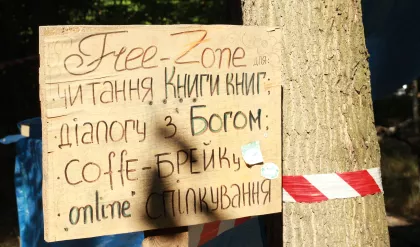 Free-Zone для:
читання Книги книг;
діалогу з Богом;
coffe-брейку
"online" спілкування